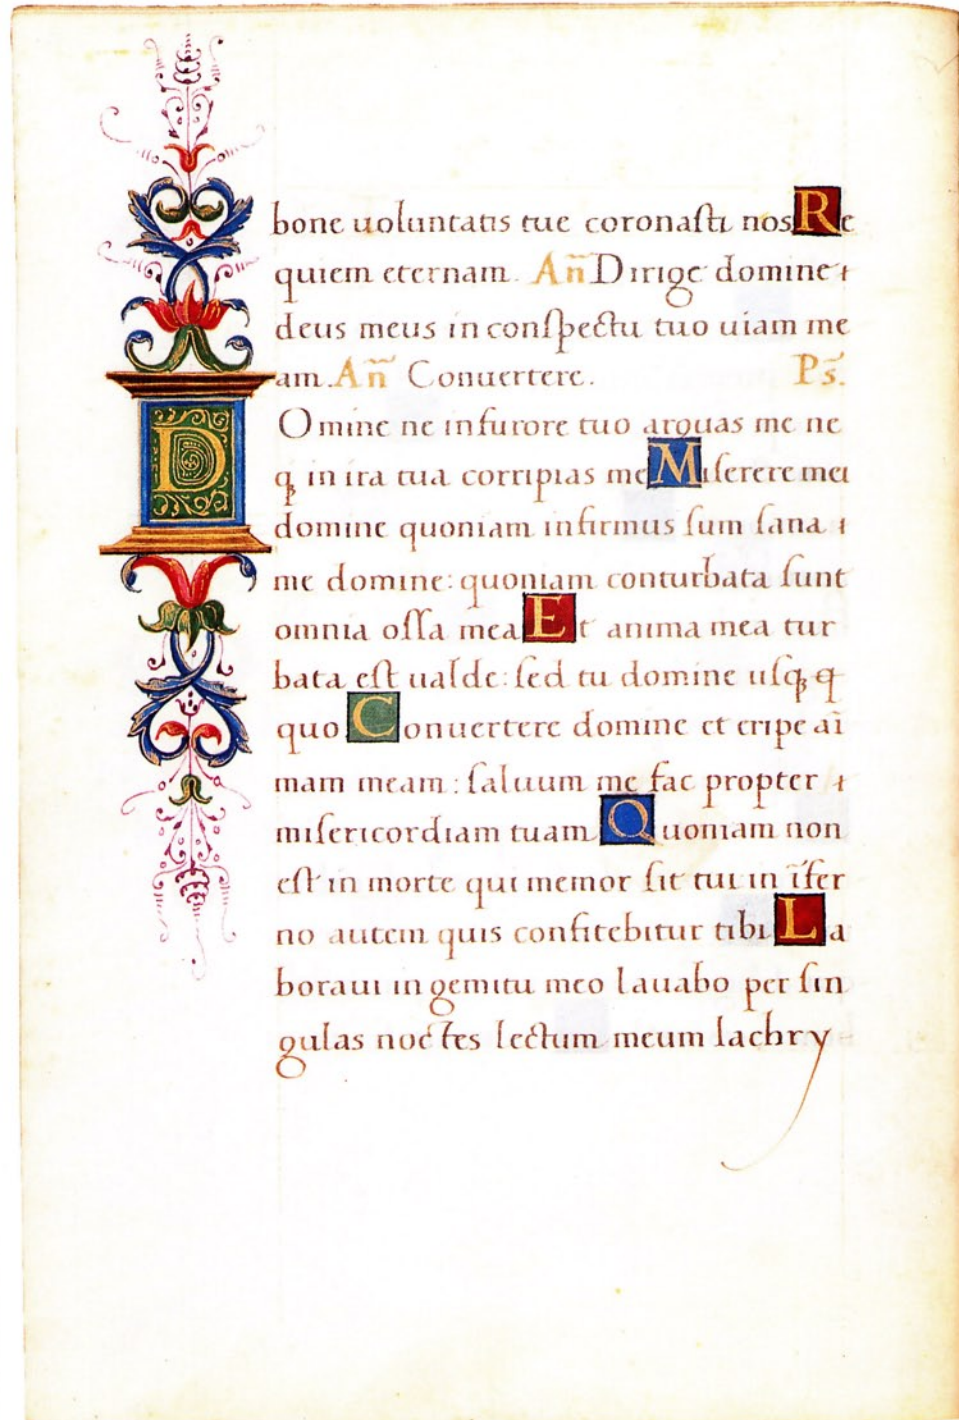 bone uoluntatis tue coronaſti nos Re
quiem eternam. An̄ Dirige domine
deus meus in conſpectu tuo uiam me
am. An̄ Conuertere. Ps̄.
DOmine ne in furore tuo arguas me ne
qꝫ in ira tua corripias me Miſerere mei
domine quoniam infirmus ſum ſana
me domine: quoniam conturbata ſunt
omnia oſſa mea Et anima mea tur
bata eſt ualde: ſed tu domine uſqꝫ
quo Conuertere domine et eripe aī
mam meam: ſaluum me fac propter
miſericordiam tuam Quoniam non
eſt in morte qui memor ſit tui in īfer
no autem quis confitebitur tibi La
boraui in gemitu meo lauabo per ſin
gulas noctes lectum meum lachry